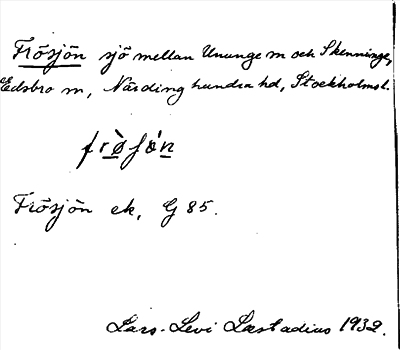 Frösjön sjö mellan Ununge m och Skenninge,
Edsbro m, Närding hundra hd, Stockholms l.
Frösjön ek, G 85.
Lars-Levi Læstadius 1932.